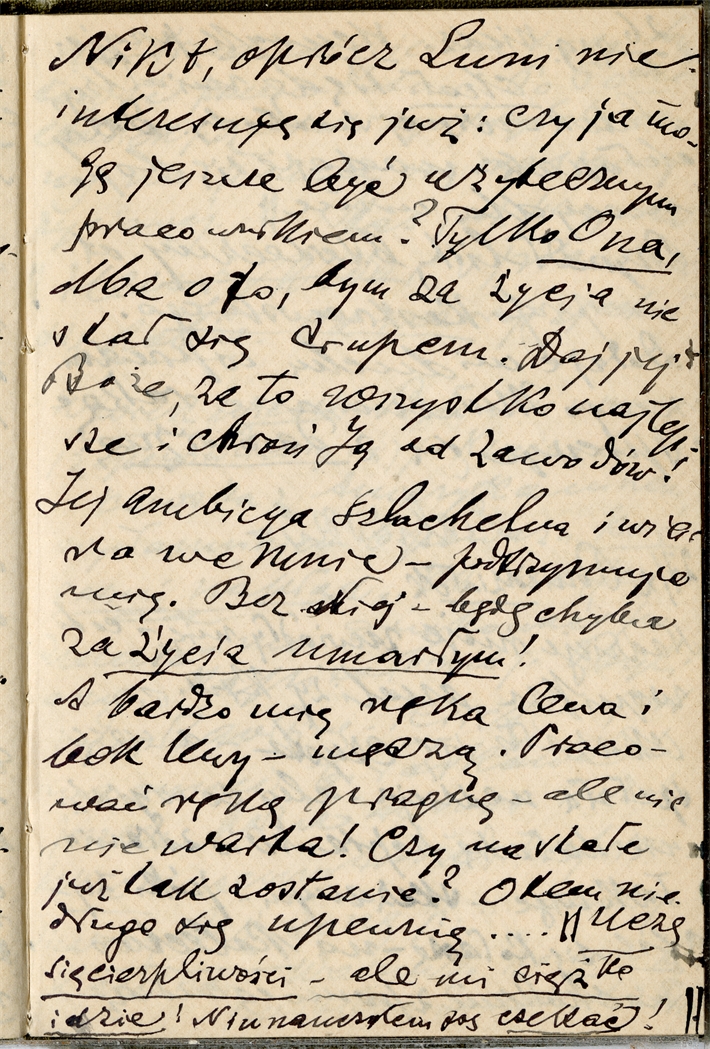 Nikt, oprócz Luni nie
interesuję się już: czy ja mo-
gę jeszcze być użytecznym
pracownikiem? Tylko Ona,
dba o to, bym za życia nie
stał się trupem. Daj jej
Boże, za to wszystko najlep-
sze i chroń Ją od zawodów!
Jej ambicya szlachetna i wia-
ra we mnie – podtrzymuje
mię. Bez Niej – będę chyba
za życia umarłym!
A bardzo mię ręka lewa i
bok lewy – męczą. Praco-
wać ręką pragnę – ale nic
nie warta! Czy na stałe
już tak zostanie? O tem nie-
długo się upewnię .... Uczę
się cierpliwości – ale mi ciężko
idzie! Nie nauczyłem się czekać!